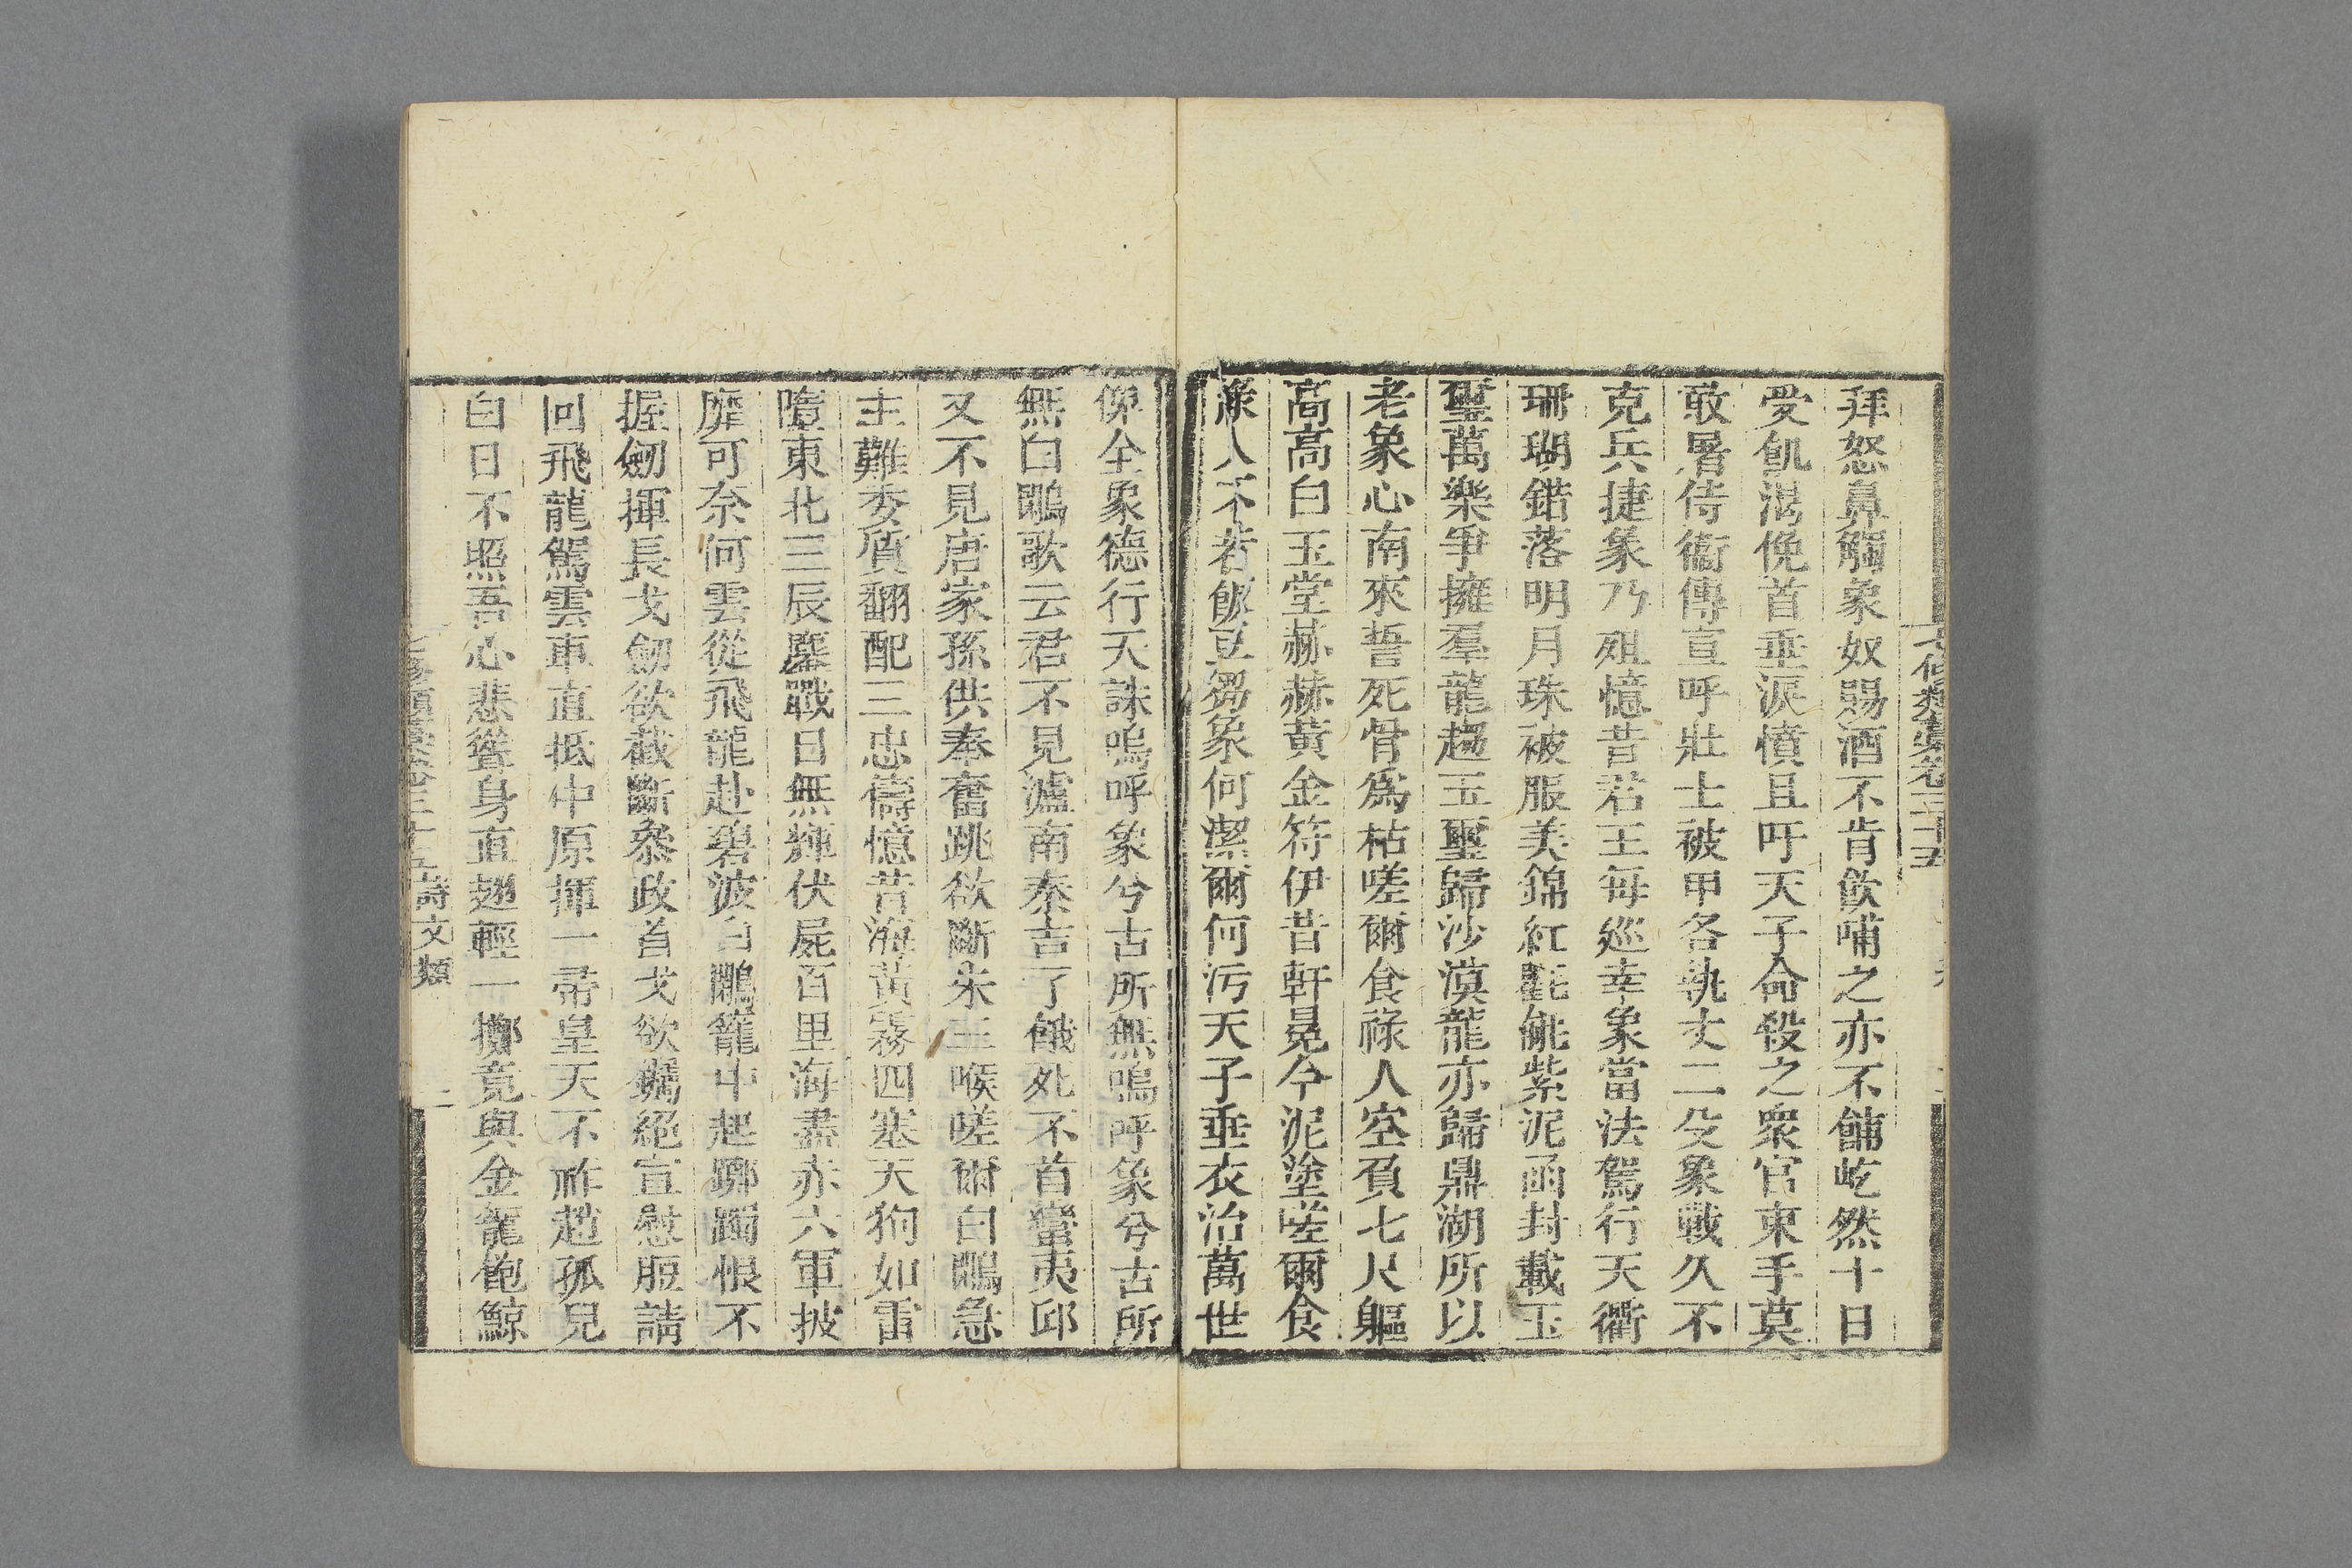 七修類稾卷三十五
拜怒鼻觸象奴賜酒不肯飲哺之亦不餔屹然十日
受飢渴俛首垂淚憤且吁天子命殺之衆官束手莫
敢暑侍衞傳宣呼壯士被甲各執丈二殳象戰久不
克兵捷象乃殂憶昔君王每巡幸象當法駕行天衢
珊瑚錯落明月珠被服美錦紅氍毹紫泥函封載玉
璽萬樂爭擁羣龍趨玉璽歸沙漠龍亦歸鼎湖所以
老象心南來誓死骨爲枯嗟爾食祿人空負七尺軀
高高白玉堂赫赫黃金符伊昔軒晃今泥塗嗟爾食
祿人不若飯豆芻象何潔爾何污天子垂衣治萬世
俾全象德行天誅嗚呼象兮古所無嗚呼象兮古所
無白鷴歌云君不見瀘南秦吉了餓死不首蠻夷邱
又不見唐家孫供奉奮跳欲斷朱三喉嗟爾白鷴急
主難委質翻配三忠儔憶昔海黃霧四塞天狗如雷
隨東北三辰鏖戰日無輝伏屍百里海盡赤六軍披
靡可奈何雲從飛龍赴碧波白鷴籠中起躑躅恨不
握劒揮長戈劒欲截斷叅政首戈欲斸絕宣慰脰請
回飛龍駕雲車直抵中原揮一帚皇天不祚趙孤兒
白日不照吾心悲聳身直翅輕一擲竟與金籠飽鯨
七修類稾卷三十五 詩文類 二